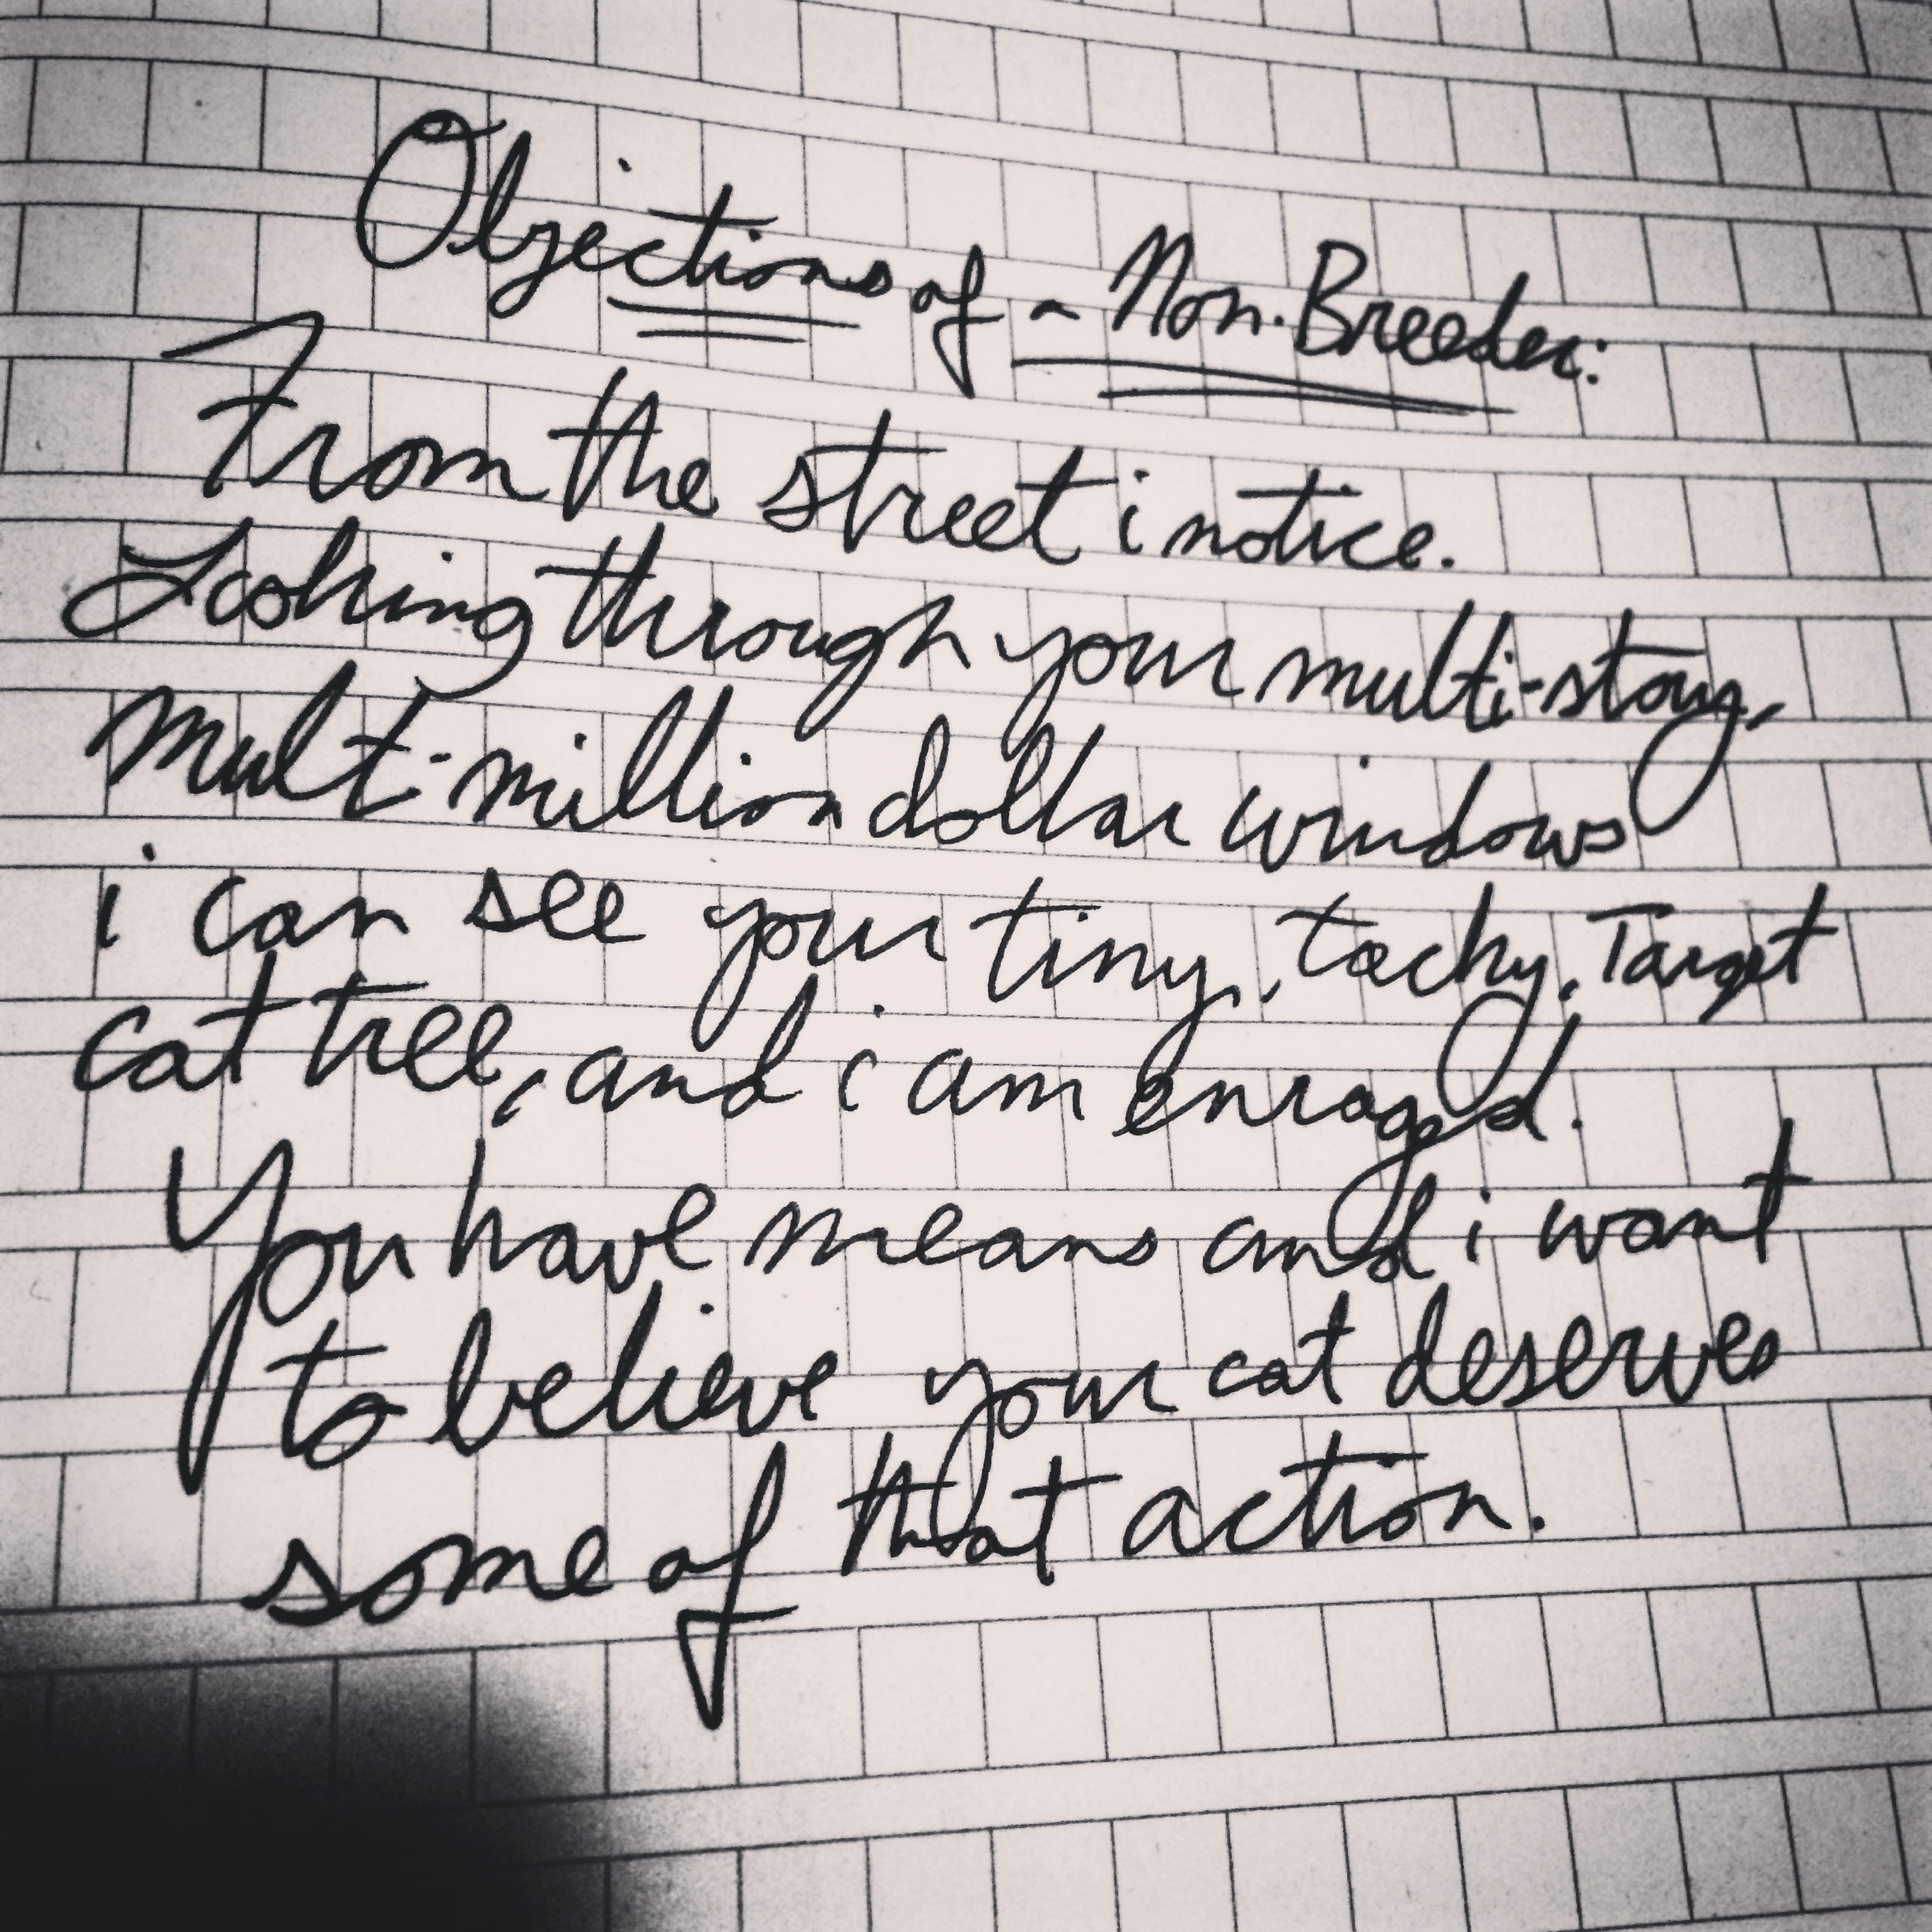 Objections of a Non-Breeder:
From the street i notice.
Looking through your multi-story,
multi-million dollar windows
i can see your tiny, tacky, Target
cat tree, and i am enraged.
You have means and i want
to believe your cat deserves
some of that action.